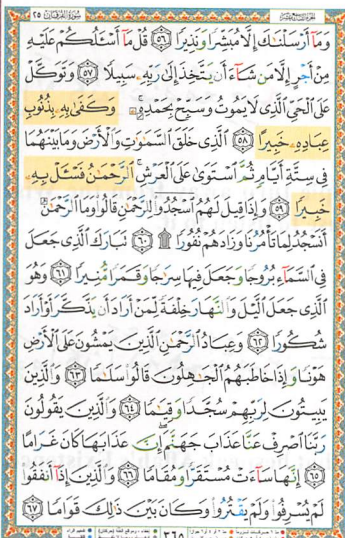 سُورَةُ الفُرْقَانِ ٢٥
وَمَآ أَرْسَلْنَٰكَ إِلَّا مُبَشِّرًا وَنَذِيرًا ٥٦ قُلْ مَآ أَسْـَٔلُكُمْ عَلَيْهِ
مِنْ أَجْرٍ إِلَّا مَن شَآءَ أَن يَتَّخِذَ إِلَىٰ رَبِّهِۦ سَبِيلًا ٥٧ وَتَوَكَّلْ
عَلَى ٱلْحَىِّ ٱلَّذِى لَا يَمُوتُ وَسَبِّحْ بِحَمْدِهِۦۚ وَكَفَىٰ بِهِۦ بِذُنُوبِ
عِبَادِهِۦ خَبِيرًا ٥٨ ٱلَّذِى خَلَقَ ٱلسَّمَٰوَٰتِ وَٱلْأَرْضَ وَمَا بَيْنَهُمَا
فِى سِتَّةِ أَيَّامٍ ثُمَّ ٱسْتَوَىٰ عَلَى ٱلْعَرْشِۚ ٱلرَّحْمَٰنُ فَسْـَٔلْ بِهِۦ
خَبِيرًا ٥٩ وَإِذَا قِيلَ لَهُمُ ٱسْجُدُوا۟ لِلرَّحْمَٰنِ قَالُوا۟ وَمَا ٱلرَّحْمَٰنُ
أَنَسْجُدُ لِمَا تَأْمُرُنَا وَزَادَهُمْ نُفُورًا ۩ ٦٠ تَبَارَكَ ٱلَّذِى جَعَلَ
فِى ٱلسَّمَآءِ بُرُوجًا وَجَعَلَ فِيهَا سِرَٰجًا وَقَمَرًا مُّنِيرًا ٦١ وَهُوَ
ٱلَّذِى جَعَلَ ٱلَّيْلَ وَٱلنَّهَارَ خِلْفَةً لِّمَنْ أَرَادَ أَن يَذَّكَّرَ أَوْ أَرَادَ
شُكُورًا ٦٢ وَعِبَادُ ٱلرَّحْمَٰنِ ٱلَّذِينَ يَمْشُونَ عَلَى ٱلْأَرْضِ
هَوْنًا وَإِذَا خَاطَبَهُمُ ٱلْجَٰهِلُونَ قَالُوا۟ سَلَٰمًا ٦٣ وَٱلَّذِينَ
يَبِيتُونَ لِرَبِّهِمْ سُجَّدًا وَقِيَٰمًا ٦٤ وَٱلَّذِينَ يَقُولُونَ
رَبَّنَا ٱصْرِفْ عَنَّا عَذَابَ جَهَنَّمَۖ إِنَّ عَذَابَهَا كَانَ غَرَامًا
٦٥ إِنَّهَا سَآءَتْ مُسْتَقَرًّا وَمُقَامًا ٦٦ وَٱلَّذِينَ إِذَآ أَنفَقُوا۟
لَمْ يُسْرِفُوا۟ وَلَمْ يَقْتُرُوا۟ وَكَانَ بَيْنَ ذَٰلِكَ قَوَامًا ٦٧
٣٦٥